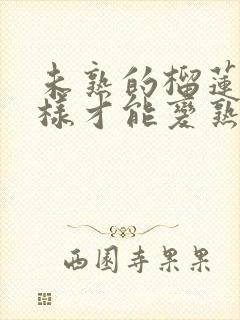 未熟的榴莲
样才能变熟
西园寺果果